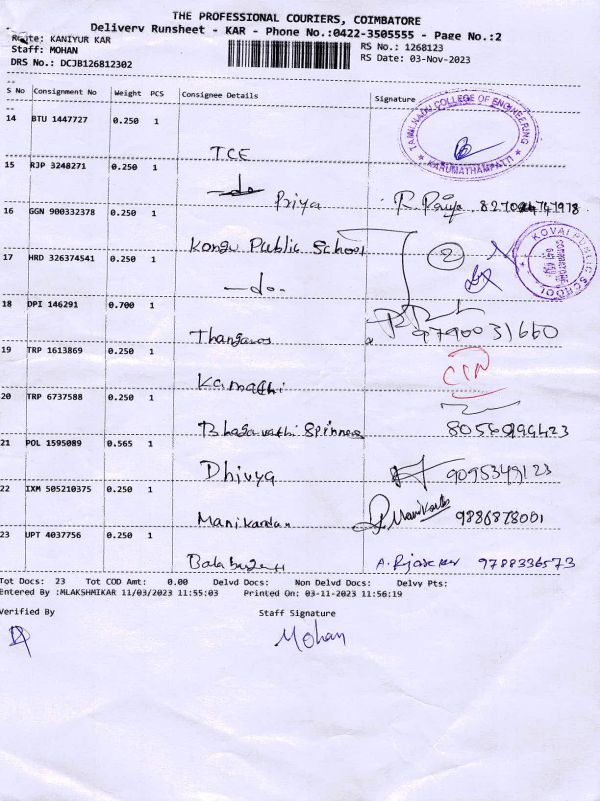 THE PROFESSIONAL COURIERS, COIMBATORE
Delivery Runsheet - KAR - Phone No.:0422-3505555 - Page No.:2
Route: KANIYUR KAR
Staff: MOHAN
DRS No.: DCJB126812302
RS No.: 1268123
RS Date: 03-Nov-2023
S No Consignment No Weight PCS Consignee Details Signature
14 BTU 1447727 0.250 1
TCE
TAMILNADU COLLEGE OF ENGINEERING
★ KARUMATHAMPATTI ★
15 RJP 3248271 0.250 1
do Priya R. Priya
16 GGN 900332378 0.250 1
Kongu Public School
KOVAI PUBLIC SCHOOL
17 HRD 326374541 0.250 1
—do.
18 DPI 146291 0.700 1
9790031660
19 TRP 1613869 0.250 1
20 TRP 6737588 0.250 1
Bhagavathi Spinners
21 POL 1595089 0.565 1
Dhivya 9095349123
22 IXM 505210375 0.250 1
Manikandan 9886878001
23 UPT 4037756 0.250 1
9788336573
Tot Docs: 23 Tot COD Amt: 0.00 Delvd Docs: Non Delvd Docs: Delvy Pts:
Entered By :MLAKSHMIKAR 11/03/2023 11:55:03 Printed On: 03-11-2023 11:56:19
Verified By Staff Signature
Mohan